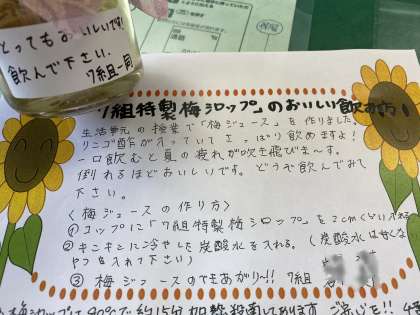 とってもおいしいです!
飲んで下さい。
7組一同
7組特製梅シロップのおいしい飲み方!
生活単元の授業で「梅ジュース」を作りました。
リンゴ酢が入っていてさっぱり飲めますよ!
一口飲むと夏の疲れが吹き飛びま～す。
倒れるほどおいしいです。どうぞ飲んでみて
下さい。
〈梅ジュースの作り方〉
①コップに「7組特製梅シロップ」を2cmくらい入れる
②キンキンに冷やした炭酸水を入れる。(炭酸水は甘くな
やつを入れて下さい)
③梅ジュースのできあがり~!! 7組
梅シロップは80℃で約15分加熱殺菌してあります